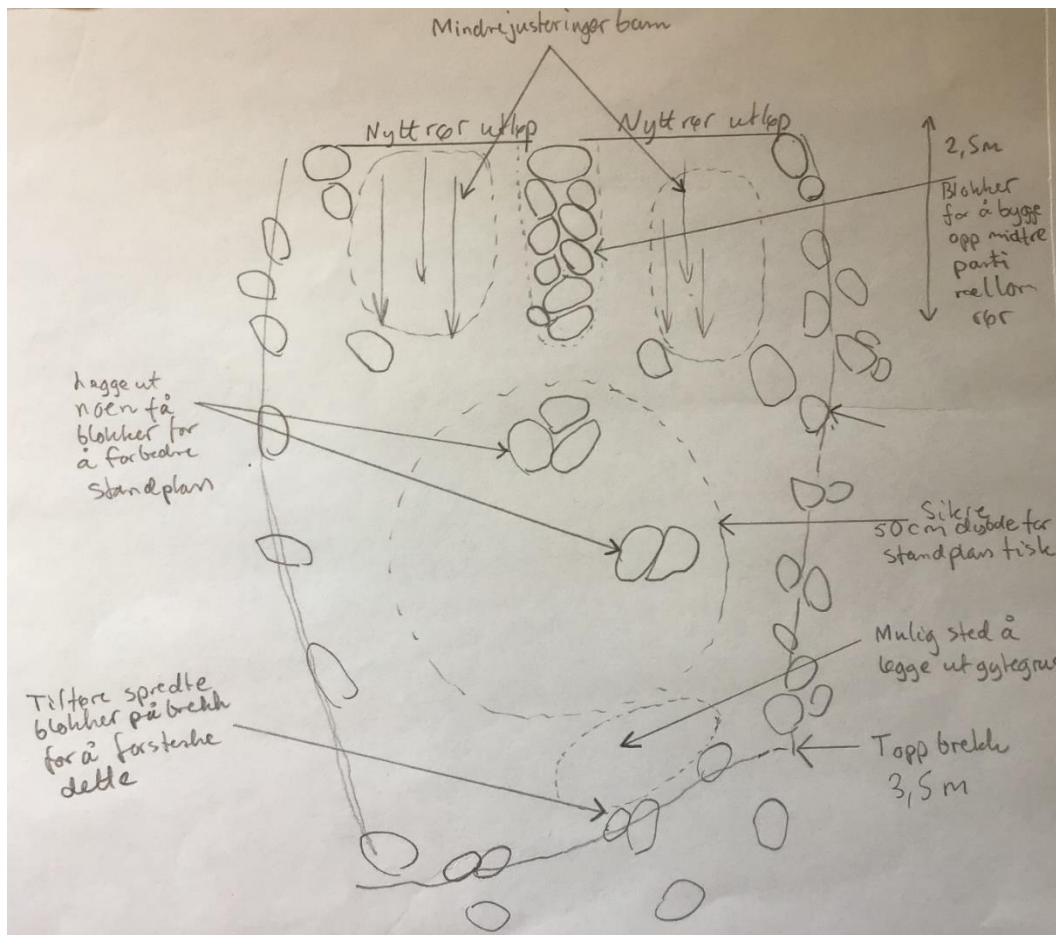 Mindre justeringer bunn
Nytt rør utløp
Nytt rør utløp
2,5m
Blokker
for å bygge
opp midtre
parti
mellom
rør
Legge ut
noen få
blokker for
å forbedre
standplan
Sikre
50cm dybde for
standplan fisk
Mulig sted å
legge ut gytegrus
Tilføre spredte
blokker på brekk
for å forsterke
dette
Topp brekk
3,5 m